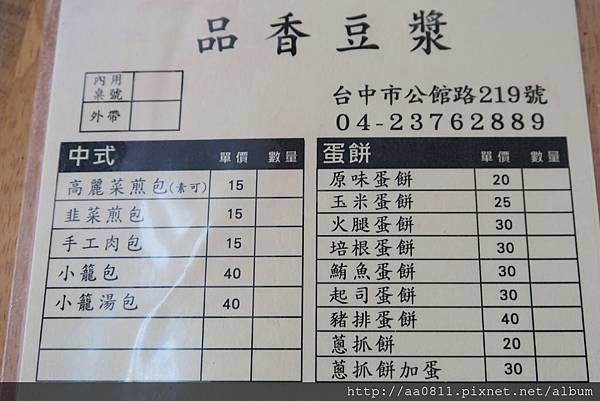 品香豆漿
內用桌號
外帶
台中市公館路219號
04-23762889
中式 單價 數量
高麗菜煎包(素可) 15
韭菜煎包 15
手工肉包 15
小籠包 40
小籠湯包 40
蛋餅 單價 數量
原味蛋餅 20
玉米蛋餅 25
火腿蛋餅 30
培根蛋餅 30
鮪魚蛋餅 30
起司蛋餅 30
豬排蛋餅 40
蔥抓餅 20
蔥抓餅加蛋 30
http://aa0811.pixnet.net/album